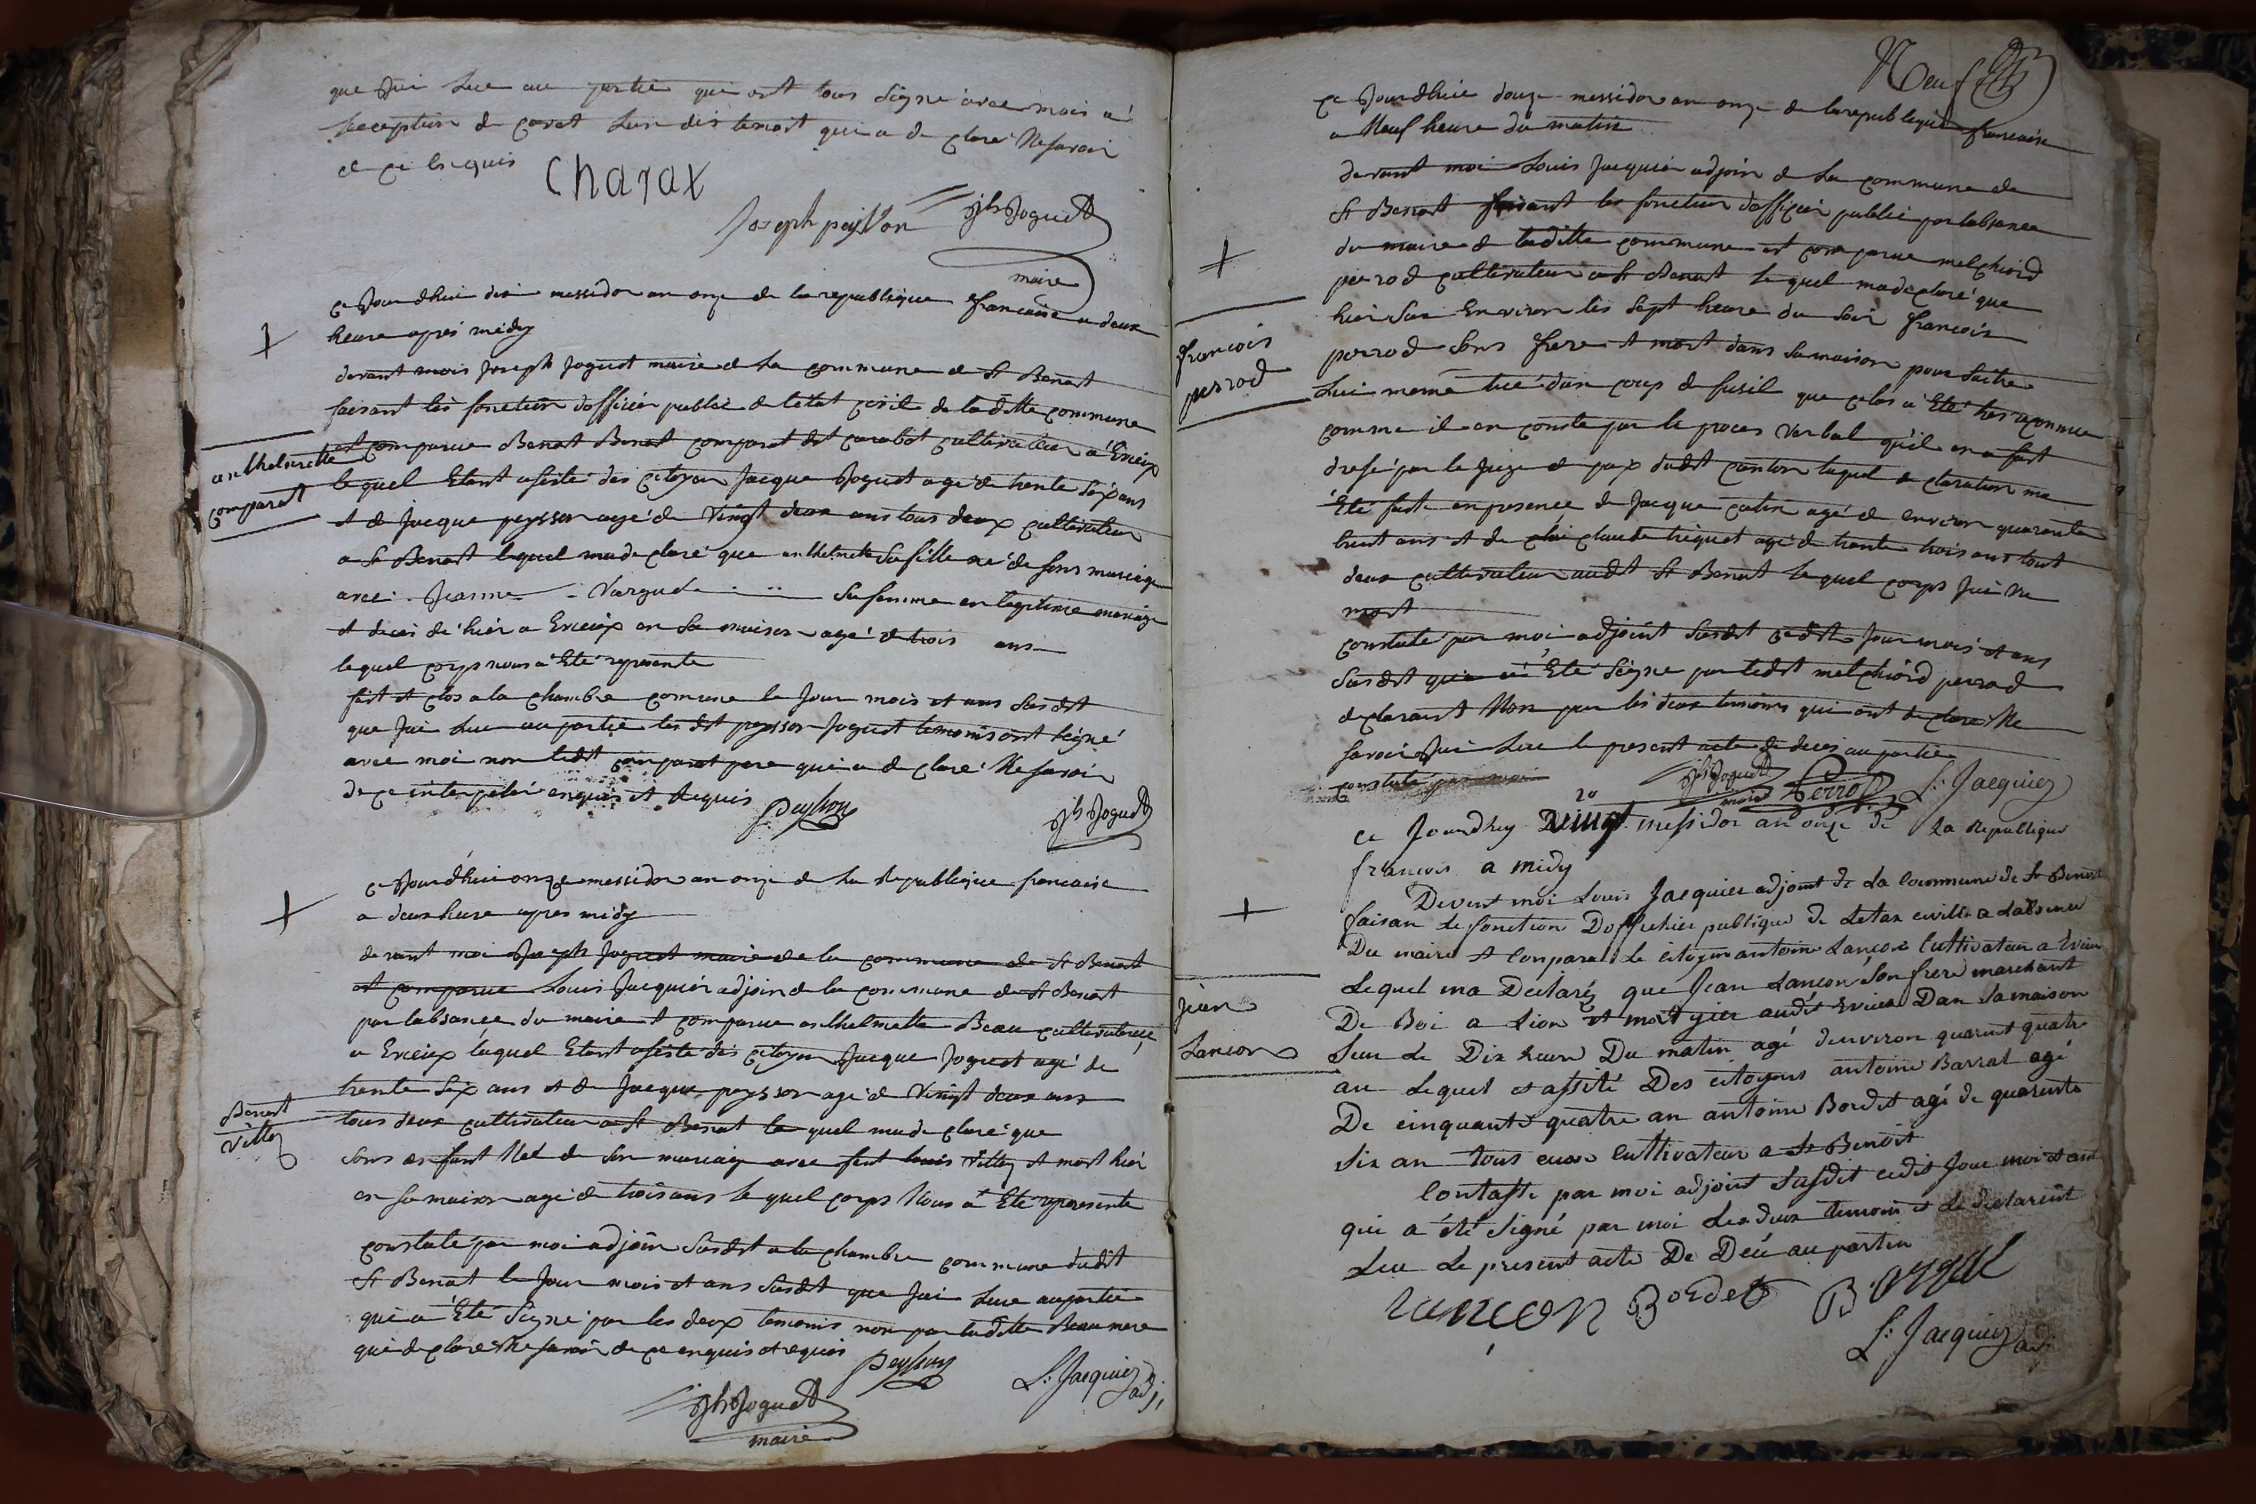 que jai lue au partie qui ont tous signé avec mois a
lexception de caret lun des temoit qui a de claré Ne savoir
de ce enquis
Charax
Joseph peysson
Jh Joguet
maire
ce Jourdhui dixi messidor an onze de la republique francaise a deux
heure apres midy
devant mois Joseph Joguet maire de la commune de St Benoit
faisant les fonction dofficier public de letat civil de la ditte commune
est comparue Benoit Benoit comparet dit carabot cultivateur a Evieux
lequel Etant asisté des citoyen Jacque Joguet age de trente six ans
et de Jacque peysson agé de vingt deux ans tous deux cultivateur
a St Benoit lequel ma de claré que anthelmette sa fille né de sons mariage
avec Jeanne Vargude sa femme en legitime mariage
et decés dé hier a Evieux en sa maison agé de trois ans
lequel corps nous a Eté represente
fait et clos a la chambre comune le Jour mois et ans susdit
que jai lue au partie les dit peysson Joguet temoins ont signé
avec moi non ledit comparet pere qui a de claré Ne savoir
de ce interpelé enquis et requis
Peysson
Jh Joguet
anthelmette
comparet
ce Jourdhui onze messidor an onze de la republique francaise
a deux heure apres midy
devant moi Joseph Joguet maire de la commune de St Benoit
est comparue Louis Jacquier adjoin de la commune de St Benoit
par labsance du maire et comparue anthelmette Beau cultivatrice
a Evieux laquel Etant asisté des citoyen Jacque Joguet agé de
trente six ans et de Jacque peysson agé de vingt deux ans
tous deux cultivateur a St Benoit le quel ma de claré que
sons enfant Né de son mariage avec feut louis Villoz et mort hier
en sa maison agé de trois ans le quel corps Nous a Eté represente
constaté par moi adjoin susdit a la chambre commune dudit
St Benoit le Jour mois et ans susdit que jai lue au partie
qui a Eté Signé par les deux temoins non par la ditte Beau mere
qui de claré Ne savoir de ce enquis et requis
Peysson
L: Jacquier adj.
Jh Joguet
maire
Benoit
Villoz
Neuf
ce Jourdhui douze messidor an onze de la republique francaise
a Neuf heure du matin
devant moi Louis Jacquier adjoin de la commune de
St Benoit faisant les fonction dofficier public par labsance
du maire de ladite commune est comparue melchiord
perrod cultivateur a St Benoit le quel ma de claré que
hier sur Environ les sept heure du soir francois
perrod sons frere et mort dans sa maison pour saitre
Lui meme tué dun coup de fusil que celas a Eté hes reconnue
comme il en conste par le proces verbal qu'il en a fait
dresé par le Juge de pax dudit canton laquel de claration ma
Eté fait en presence de Jacque catin agé de environ quarante
huit ans et de claude triquet agé de trante trois ans tout
deux cultivateur audit St Benoit le quel corps Jai Ve
mort
constaté par moi adjoint susdit cedit Jour mois et ans
susdit qui a Eté Signé par ledit melchiord perrod
declarant Non par les deux temoins qui ont de claré Ne
savoir Jai lue le present acte de deces au partie
constaté par moi
Jh Joguet
maire
Perrod
L: Jacquier
francois
perrod
20
ce Jourdhuy veingt messidor an onze de la Republique
francois a midy
Devent moi Louis Jacquier adjout de la Commune de St Benoit
faisan le fonction Doffichier publique de Letax civille a Labsence
Du maire et Conparu le citoyen antoine Lancon Cultivateur a Evieu
Lequel ma Declaréz que Jean Lancon son frere marchant
De Boi a Lion et mort yier audit Evieu Dan sa maison
sur Le Dix heure Du matin agé denviron quarent quatre
an Lequel et assité Des citoyens antoine Barral agé
De cinquante quatre an antoine Bordet agé de quarente
six an tous eux Cultivateur a St Benoit
Contaste par moi adjoint susdit cedit Jour moi et an
qui a été Signé par moi les deux temoin et Le declarent
Leu Le present acte De Decé au partin
rancon
Bordet
Barral
L: Jacquier adj.
Jean
Lancon